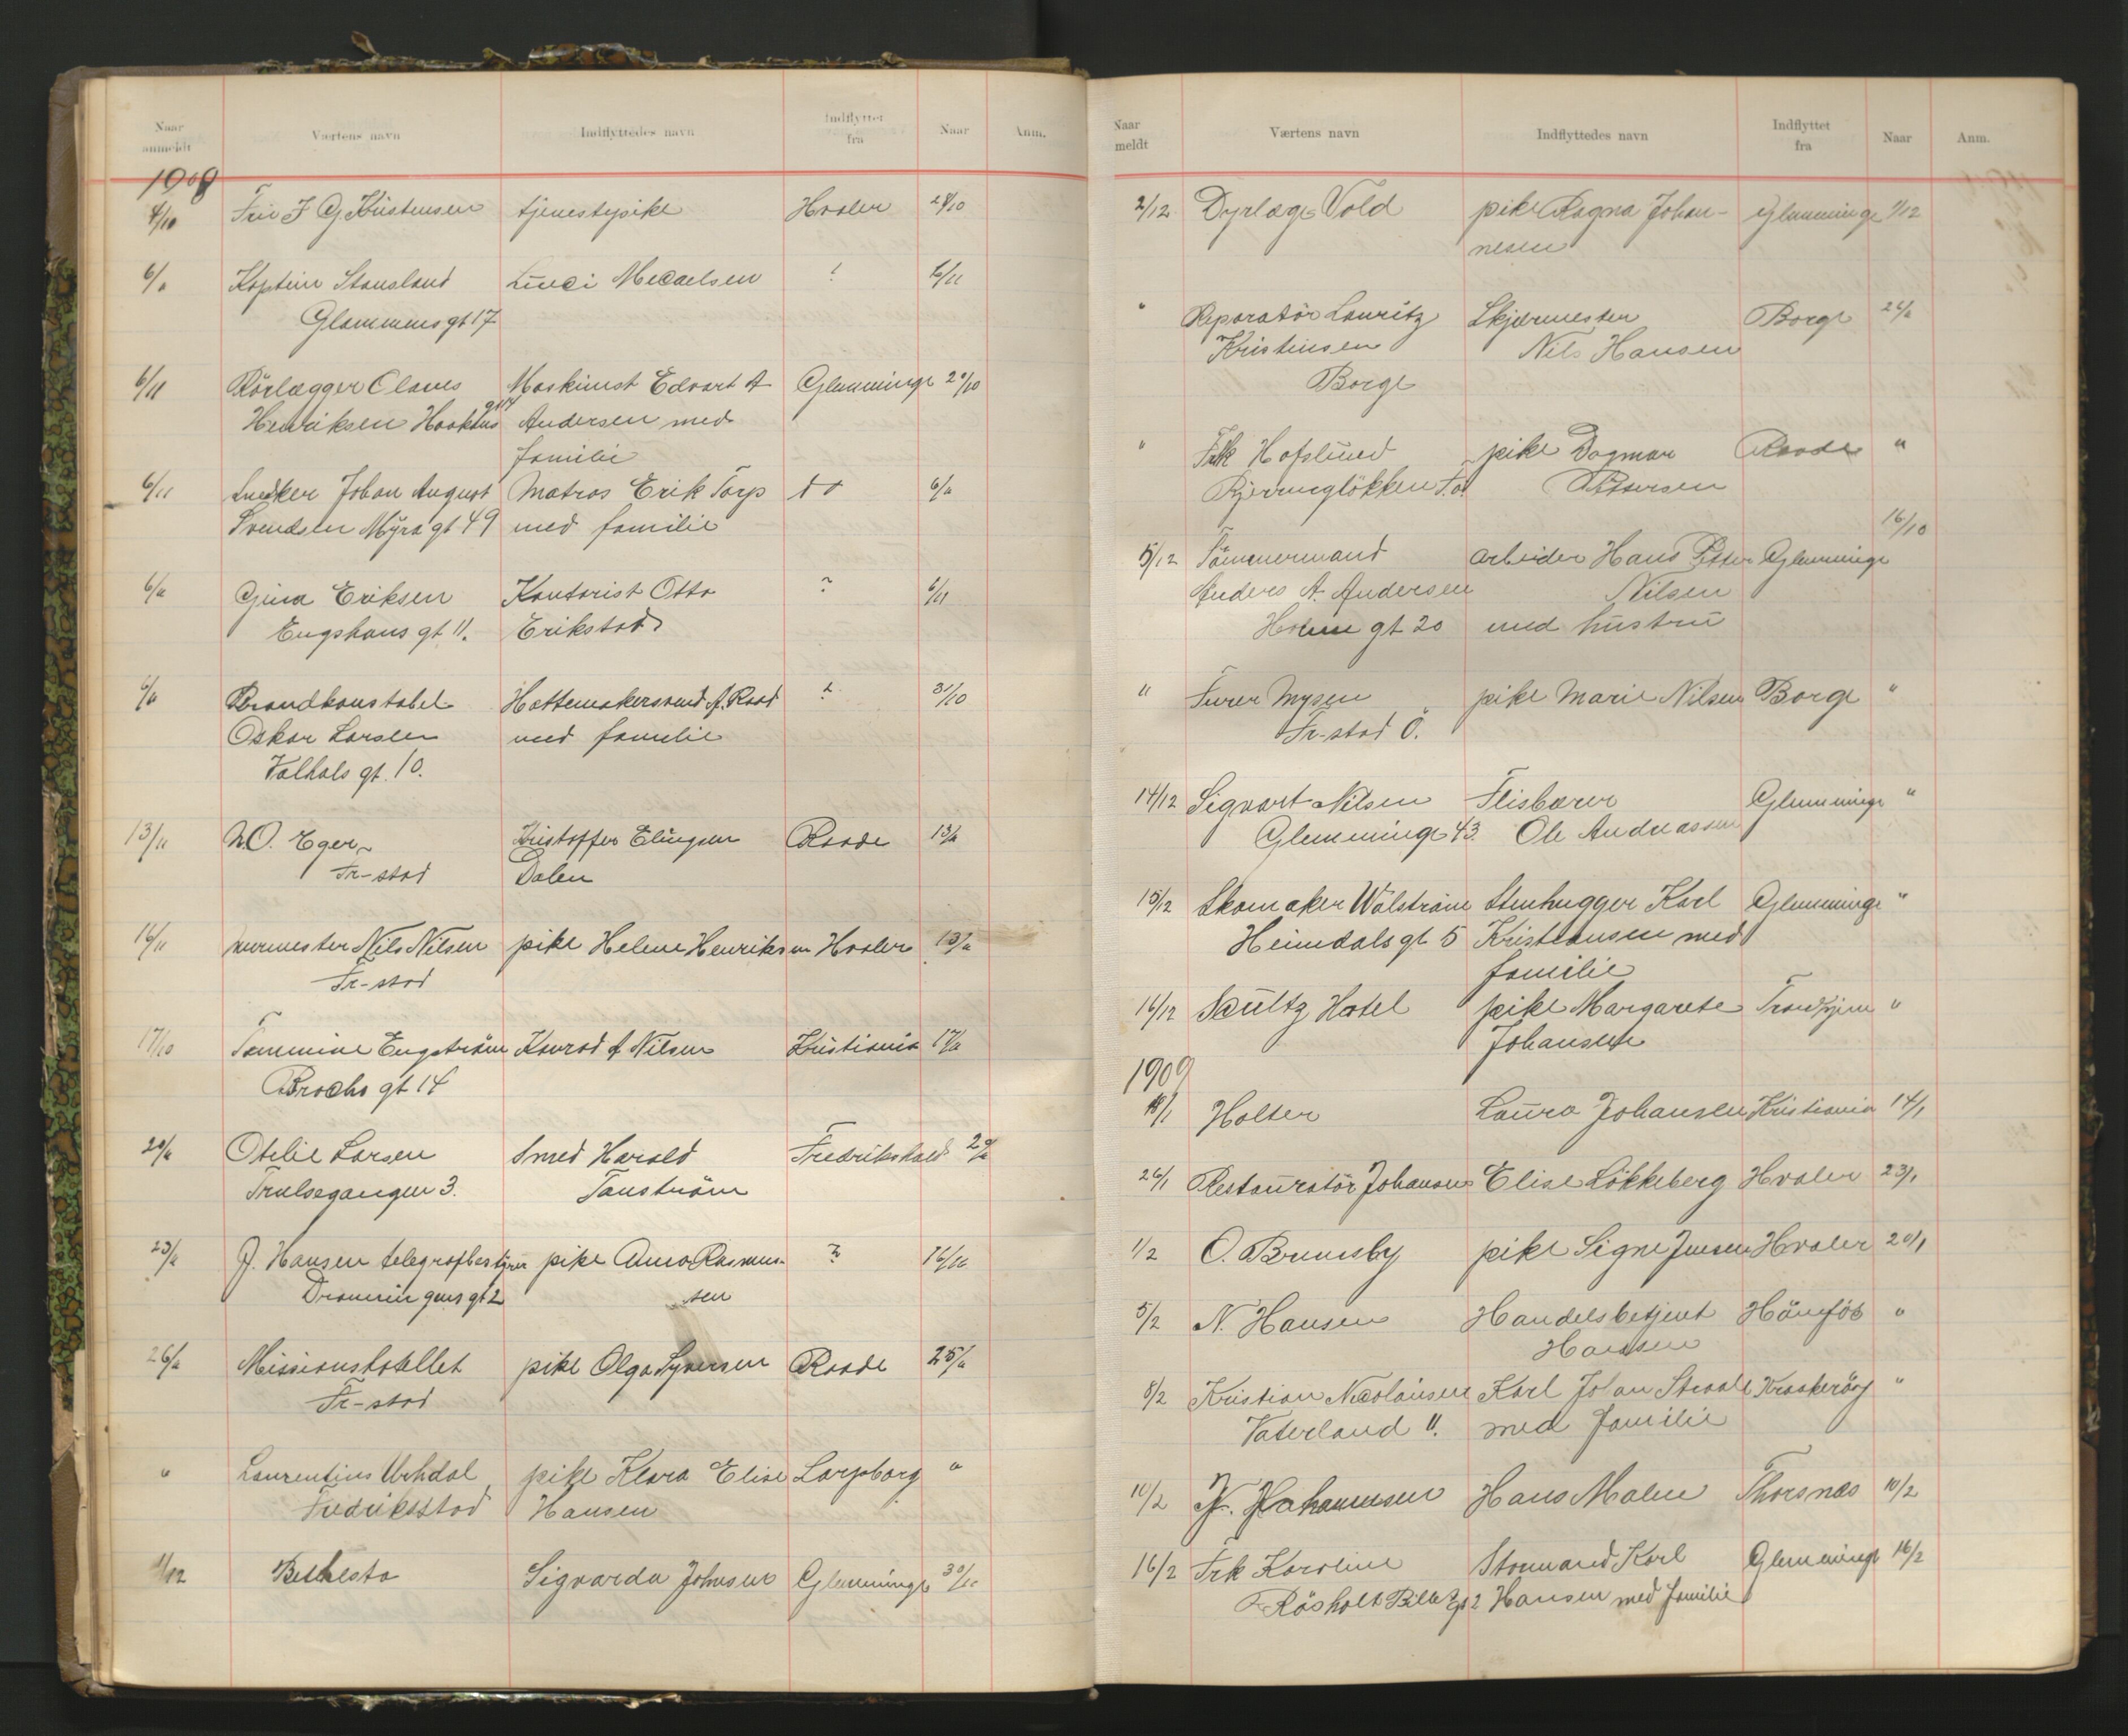 Naar anmeldt Værtens navn Indflyttedes navn Indflyttet fra Naar Anm.
1908
4/10 Fru F G Kristensen tjenestepike Hvaler 28/10
6/11 Kaptein Stousland Lucci Mecaelsen ? 6/11
Glommens gt 17
6/11 Rörlægger Claus Maskinist Edvart A Glemminge 20/10
Henriksen Haaklus gt 14 Andersen med
familie
6/11 Snedker Johan August Matros Erik Torp do 6/11
Svendsen Myra gt 49 med familie
6/11 Gina Eriksen Kontorist Otto ? 6/11
Engehaus gt 11. Erikstad
6/11 Brandkonstabel Hattemakersvend A. Raad ? 31/10
Oskar Larsen med familie
Valhals gt. 10.
13/11 N.O. Eger Kristoffer Elingsen Raade 13/11
Fr-stad Dalen
16/11 murmester Nils Nilsen pike Helene Henriksen Hvaler 13/11
Fr-stad
17/10 Tommine Engström Konrad A Nilsen Kristiania 17/11
Brochs gt 14
20/11 Otelie Larsen Smed Harald Fredrikshald 20/11
Trulsegangen 3. Tanström
23/11 J. Hansen telegrafbestyrer pike Anna Rasmus- ? 16/11
Dronningens gt 2 sen
26/11 Missionshotellet pike Olga Syversen Raade 25/11
Fr-stad
" Laurentius Urhdal pike Klara Elise Sarpborg "
Fredriksstad Hansen
1/12 Bethesta Sigvarda Johnsen Glemminge 30/11
Naar meldt Værtens navn Indflyttedes navn Indflyttet fra Naar Anm.
2/12 Dyrlæge Vold pike Ragna Johan- Glemminge 1/12
nesen
" Reparatör Lauritz Skjærmester Borge 24/11
Kristensen Nils Hansen
Borge
" Frk Hofslund pike Dagmar Raade "
Bjerringlökken F.Ö. Pettersen
16/10
5/12 Tömmermand arbeider Hans Petter Glemminge
Anders A. Andersen Nilsen
Holme gt 20 med hustru
" Furer Mysen pike Marie Nilsen Borge "
Fr-stad Ö.
14/12 Sigvart Nilsen Flisbærer Glemminge "
Glemminge 43. Ole Andreassen
15/12 Skomaker Wålström Stenhugger Karl Glemminge "
Heimdals gt 5 Kristiansen med
familie
16/12 Scultz Hotel pike Margarete Trondhjem "
Johansen
1909
18/1 Holter Laura Johansen Kristiania 14/1
26/1 Restauratör Johansen Elise Lökkeberg Hvaler 23/1
1/2 O. Brunsby pike Signe Jensen Hvaler 20/1
5/2 N. Hansen Handelsbetjent Hönefös "
Hansen
8/2 Kristian Nicolaisen Karl Johan Straale Kraakeröy "
Vaterland 11. med familie
10/2 N. Johannesen Hans Malm Thorsnæs 10/2
16/2 Frk Karoline Stuomand Karl Glemminge 16/2
Rösholt Bille gt 2 Hansen med familie